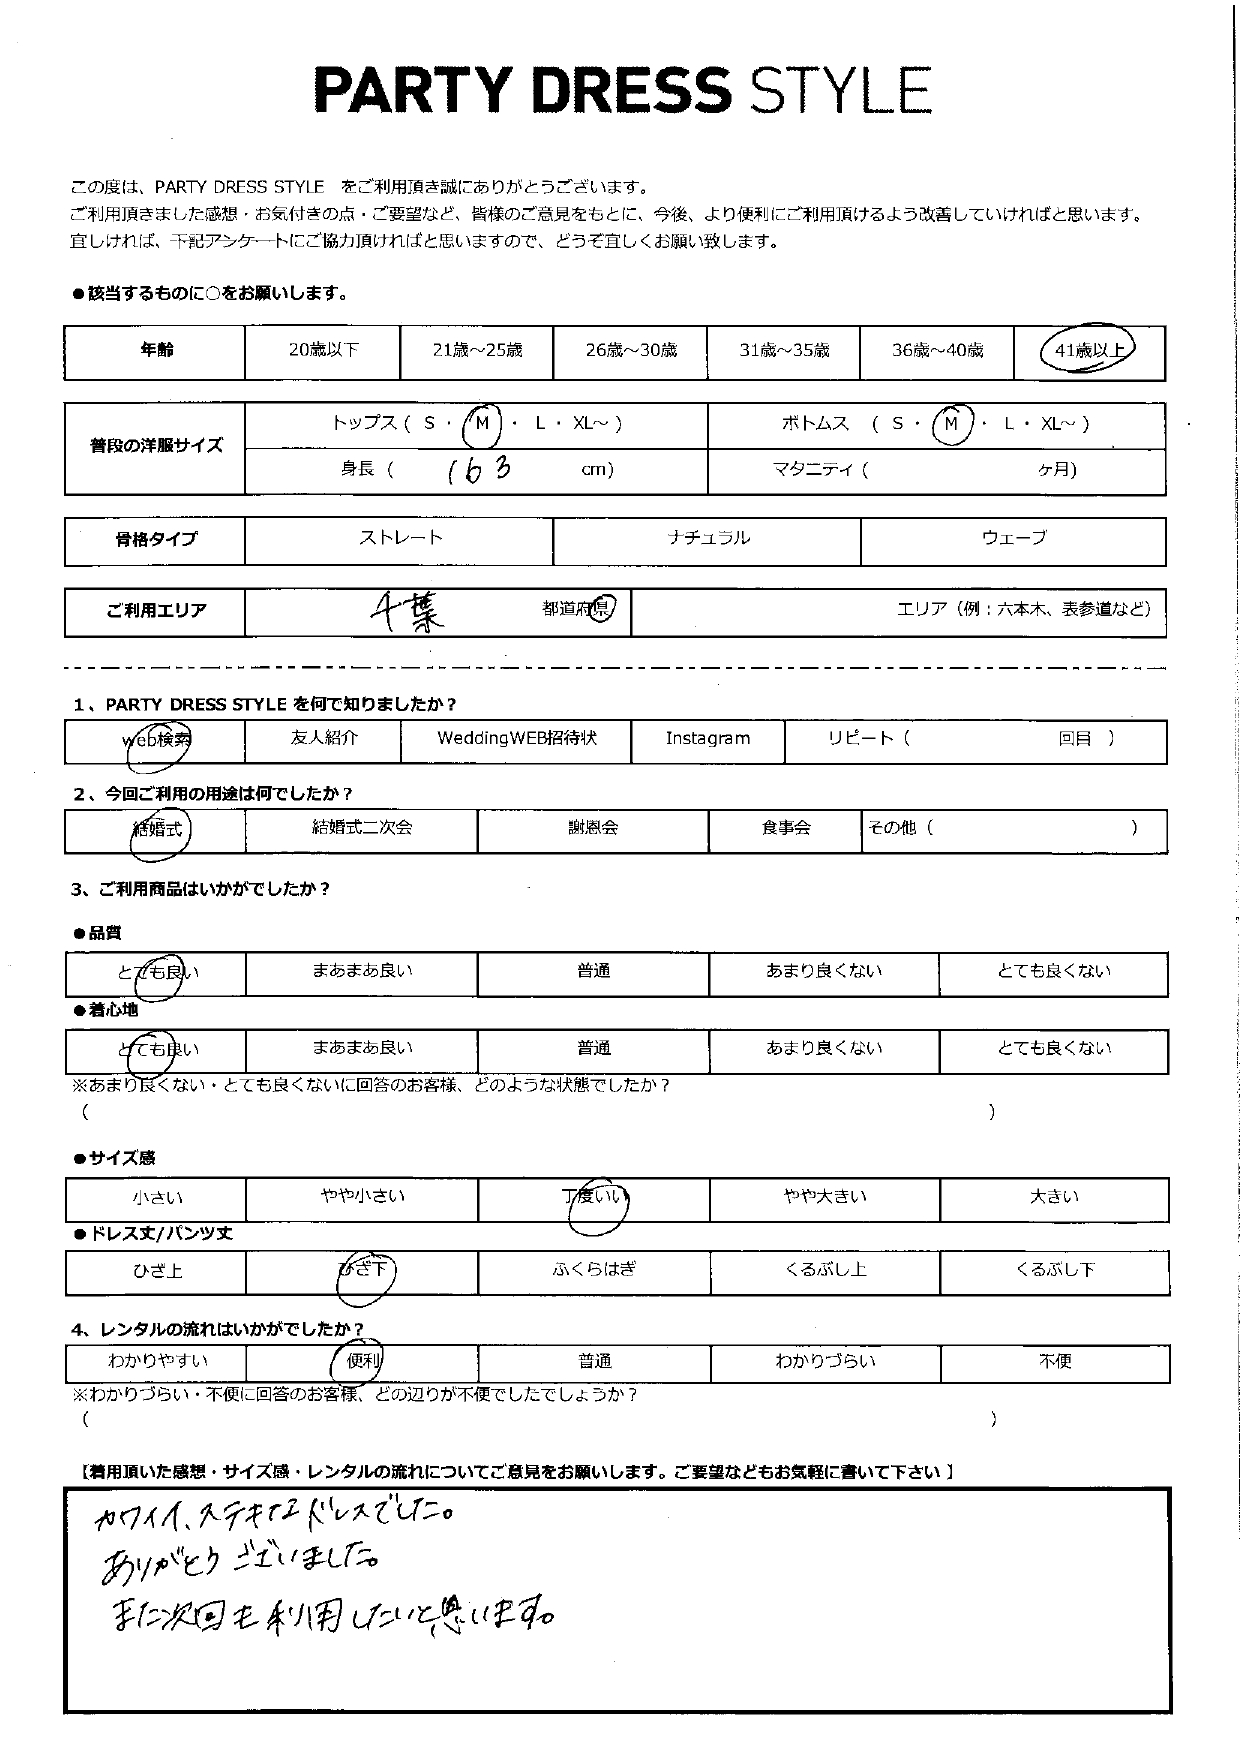 PARTY DRESS STYLE
この度は、PARTY DRESS STYLE をご利用頂き誠にありがとうございます。
ご利用頂きました感想・お気付きの点・ご要望など、皆様のご意見をもとに、今後、より便利にご利用頂けるよう改善していければと思います。
宜しければ、下記アンケートにご協力頂ければと思いますので、どうぞ宜しくお願い致します。
●該当するものに○をお願いします。
年齢 20歳以下 21歳～25歳 26歳～30歳 31歳～35歳 36歳～40歳 41歳以上
普段の洋服サイズ
トップス ( S ・ M ・ L ・ XL～ ) ボトムス ( S ・ M ・ L ・ XL～ )
身長 ( 163 cm) マタニティ ( ヶ月)
骨格タイプ ストレート ナチュラル ウェーブ
ご利用エリア 千葉 都道府県 エリア（例：六本木、表参道など）
1、PARTY DRESS STYLE を何で知りましたか？
web検索 友人紹介 WeddingWEB招待状 Instagram リピート（ 回目 ）
2、今回ご利用の用途は何でしたか？
結婚式 結婚式二次会 謝恩会 食事会 その他（ ）
3、ご利用商品はいかがでしたか？
●品質
とても良い まあまあ良い 普通 あまり良くない とても良くない
●着心地
とても良い まあまあ良い 普通 あまり良くない とても良くない
※あまり良くない・とても良くないに回答のお客様、どのような状態でしたか？
（ ）
●サイズ感
小さい やや小さい 丁度いい やや大きい 大きい
●ドレス丈/パンツ丈
ひざ上 ひざ下 ふくらはぎ くるぶし上 くるぶし下
4、レンタルの流れはいかがでしたか？
わかりやすい 便利 普通 わかりづらい 不便
※わかりづらい・不便に回答のお客様、どの辺りが不便でしたでしょうか？
（ ）
【着用頂いた感想・サイズ感・レンタルの流れについてご意見をお願いします。ご要望などもお気軽に書いて下さい】
カワイイ、ステキなドレスでした。
ありがとうございました。
また次回も利用したいと思います。